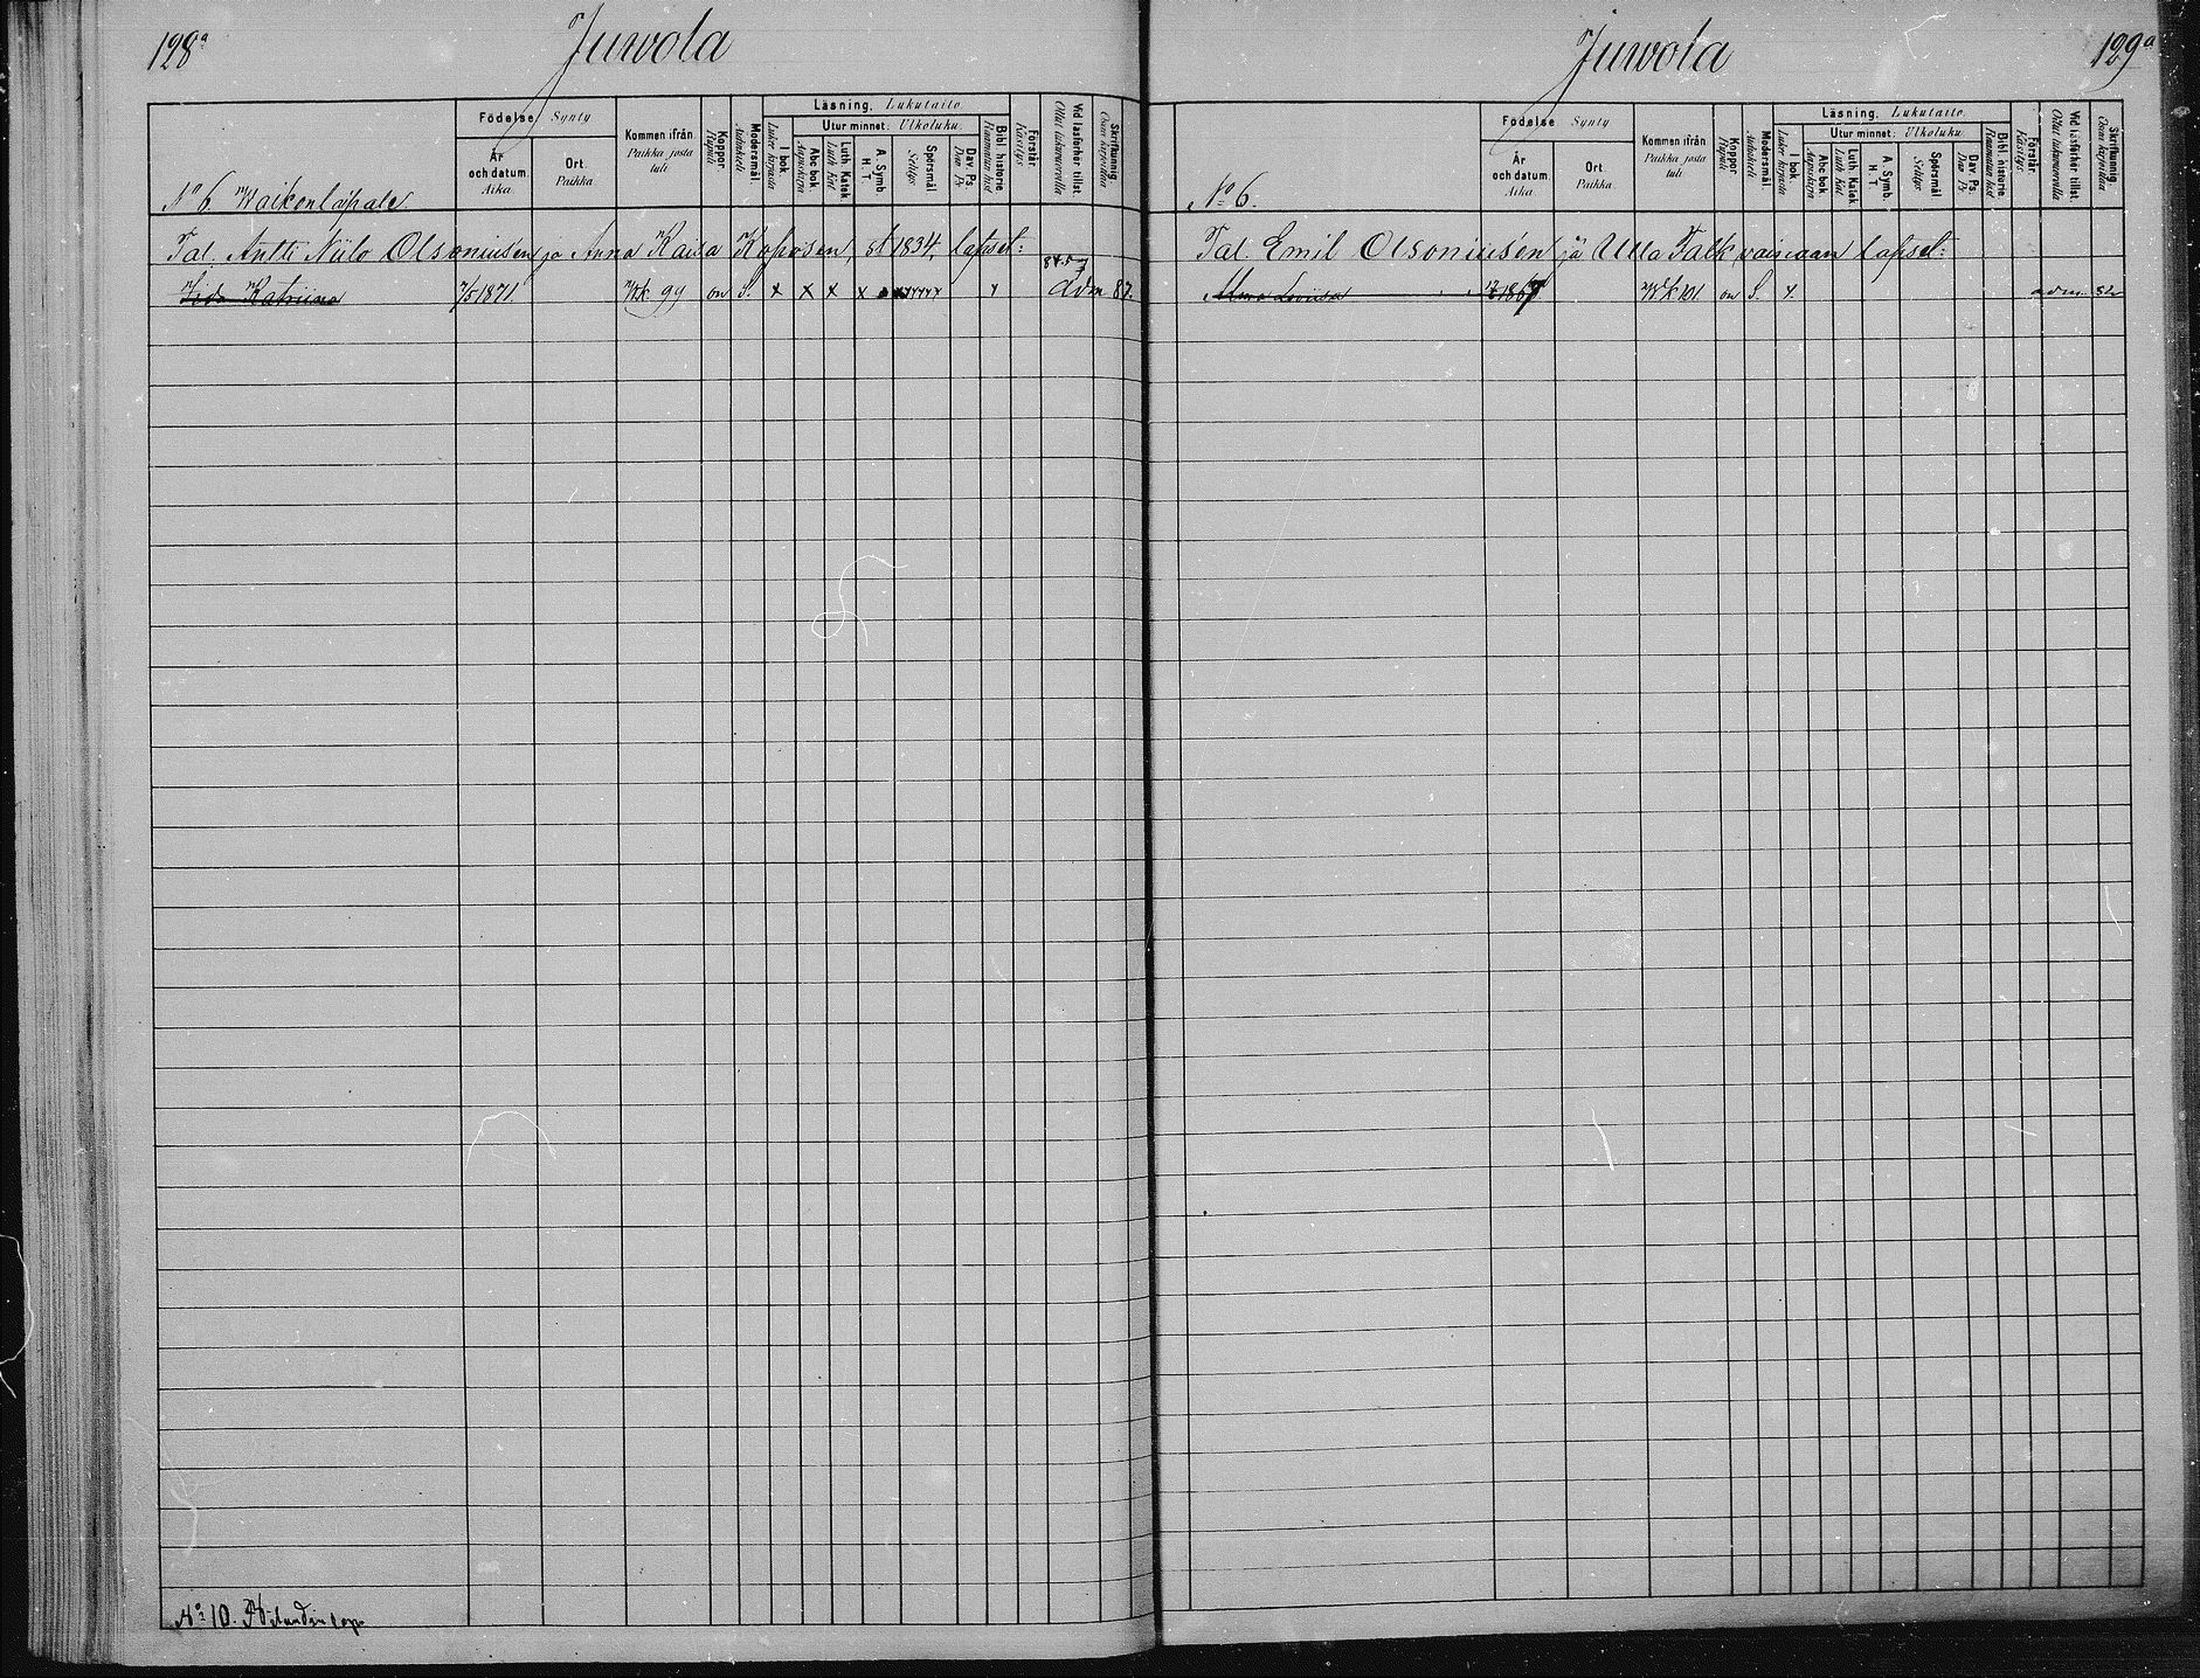 128a
Juwola
Födelse. Synty
Kommen ifrån.
Paikka josta
tuli
Koppor.
Rupuli
Modersmål.
Äidinkieli
Läsning. Lukutaito.
Utur minnet. Ulkoluku.
År
och datum.
Aika.
Ort.
Paikka
I bok.
Lukee kirjasta
Abc bok.
Aapiskirja
Luth. Katek.
Luth Kat.
A. Symb.
H. T.
Spörsmål
Selitys
Dav. Ps.
Dav Ps
Bibl. historie.
Raamatun hist
Förstår.
Käsitys
Vid läsförhör tillst.
Ollut lukukuulusteluilla
Skrifkunnig.
Osaa kirjoittaa
No 6.
Tal. Antti Niilo Olsoniusen ja Anna Kaisa Koposen, st 1834, lapset:
Iida Katriina 7/5 1871. Wk 99 on S. x x x x adm 87.
No 10.
Juwola
129a
Födelse Synty
Kommen ifrån
Paikka josta
tuli
Koppor.
Rupuli
Modersmål.
Äidinkieli
Läsning. Lukutaito
Utur minnet: Ulkoluku
År
och datum.
Aika
Ort.
Paikka
I bok.
Lukee kirjasta
Abc bok.
Aapiskirja
Luth. Katek.
Luth Kat
A. Symb.
H. T.
Spörsmål
Selitys
Dav. Ps.
Dav Ps
Bibl. historie.
Raamatun hist
Förstår.
Käsitys
Vid läsförhör tillst.
Skrifkunnig.
Osaa kirjoittaa
No 6.
Tal. Emil Olsoniusen ja Ulla Falk vainaan lapset:
Alma Loviisa 1867 Wk 101 on S. adm. 82